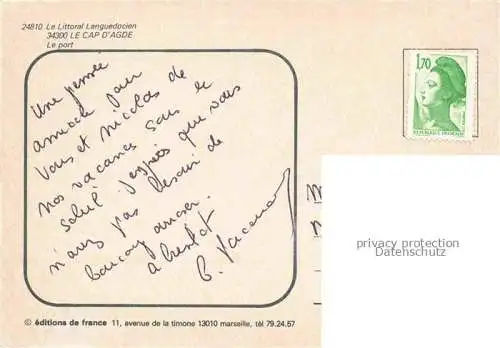 24810 Le Littoral Languedocien
34300 LE CAP D'AGDE
Le port
1,70
REPUBLIQUE FRANCAISE
Une pensée
amicale pour
Vous et Nicolas de
nos vacances sous le
soleil j'espère que vous
n'avez pas besoin de
beaucoup arroser.
a bientôt
privacy protection
Datenschutz
© éditions de france 11, avenue de la timone 13010 marseille, tél 79.24.57